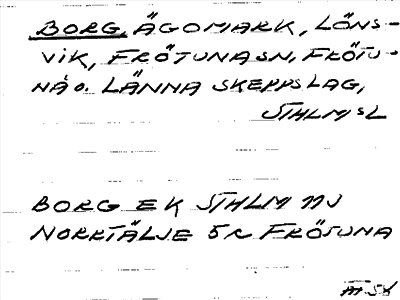 BORG, ÄGOMARK, LÖNS-
VIK, FRÖTUNA SN, FRÖTU-
NA O. LÄNNA SKEPPSLAG,
STHLMS L
BORG EK STHLM NJ
NORRTÄLJE 5R FRÖTUNA